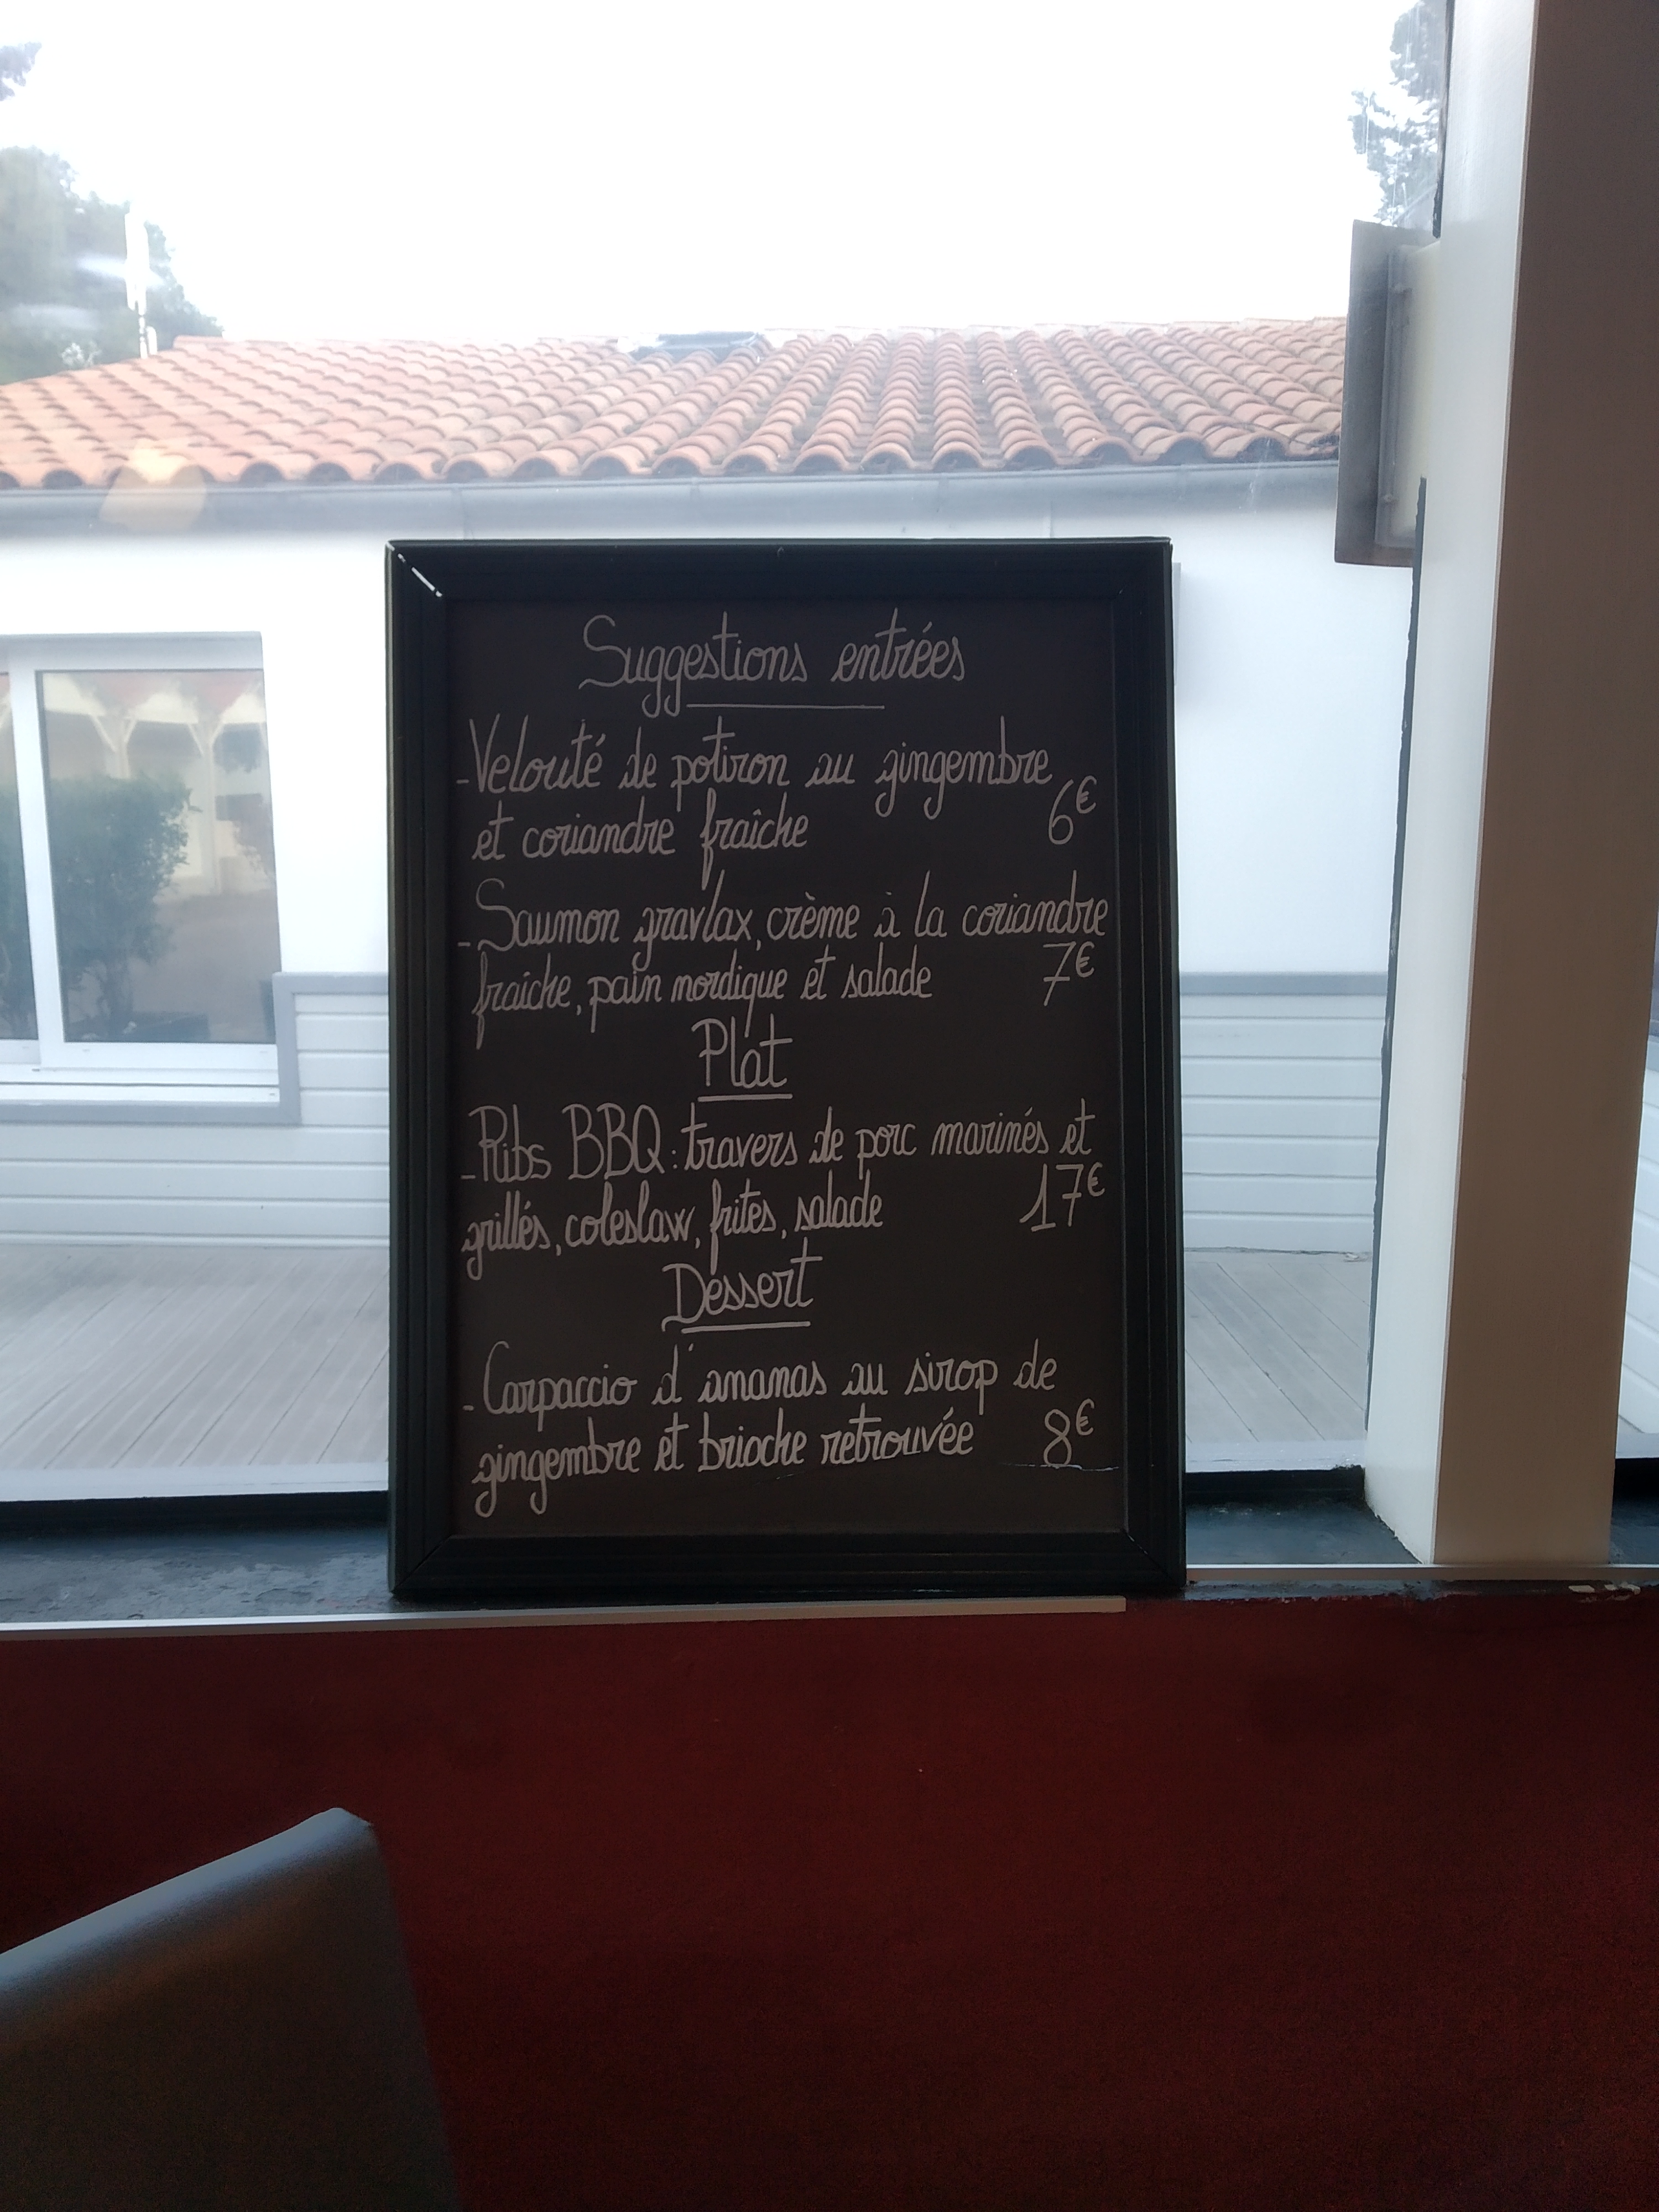 Suggestions entrées
- Velouté de potiron au gingembre
et coriandre fraîche 6€
- Saumon gravlax, crème à la coriandre
fraiche, pain nordique et salade 7€
Plat
- Ribs BBQ : travers de porc marinés et
grillés, coleslaw, frites, salade 17€
Dessert
- Carpaccio d'ananas au sirop de
gingembre et brioche retrouvée 8€